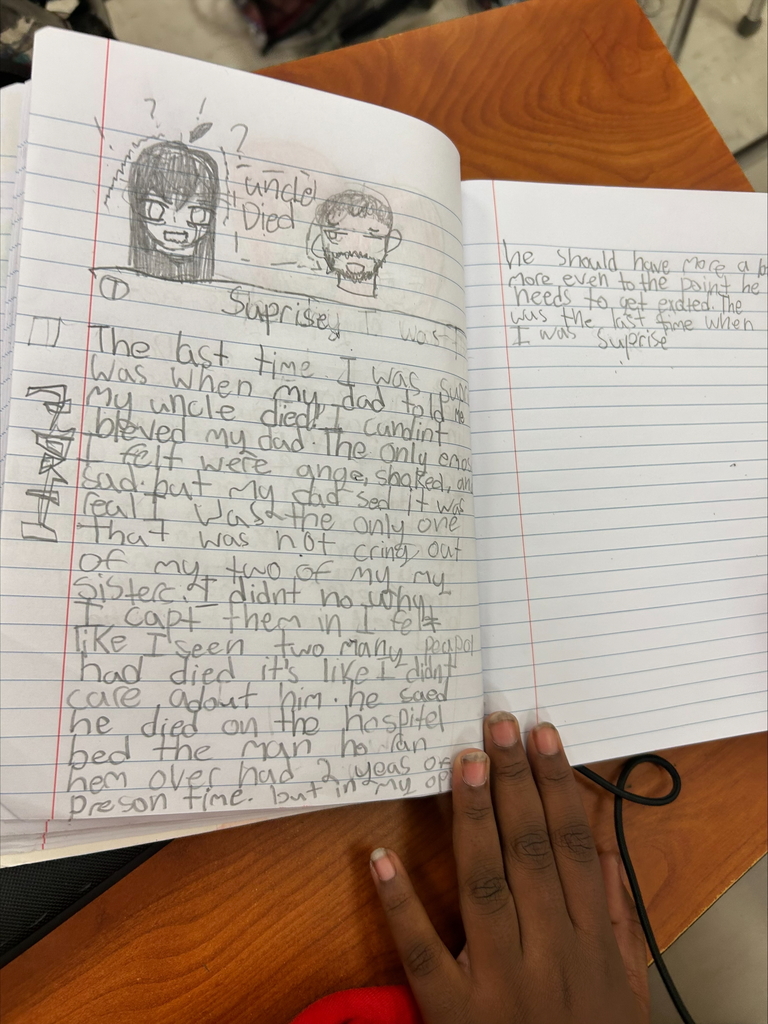 ? ! ?
uncle
Died
①
Suprise
The last time I was
was when my dad told me
my uncle died! I cundint
bleved my dad. The only
I felt were ange, shoked,
sad. but my dad sed it was
real I was the only one
that was not cring out
of my two of my my
sister. I didnt no why
I capt them in I felt
like I seen two many
had died it's like I didnt
care adout him. he saed
he died on the hospitel
bed the man ho ran
hem over had 2 yeas of
preson time. but in my
he should have more a
more even to the point he
needs to get exdted. The
was the last time when
I was Suprise